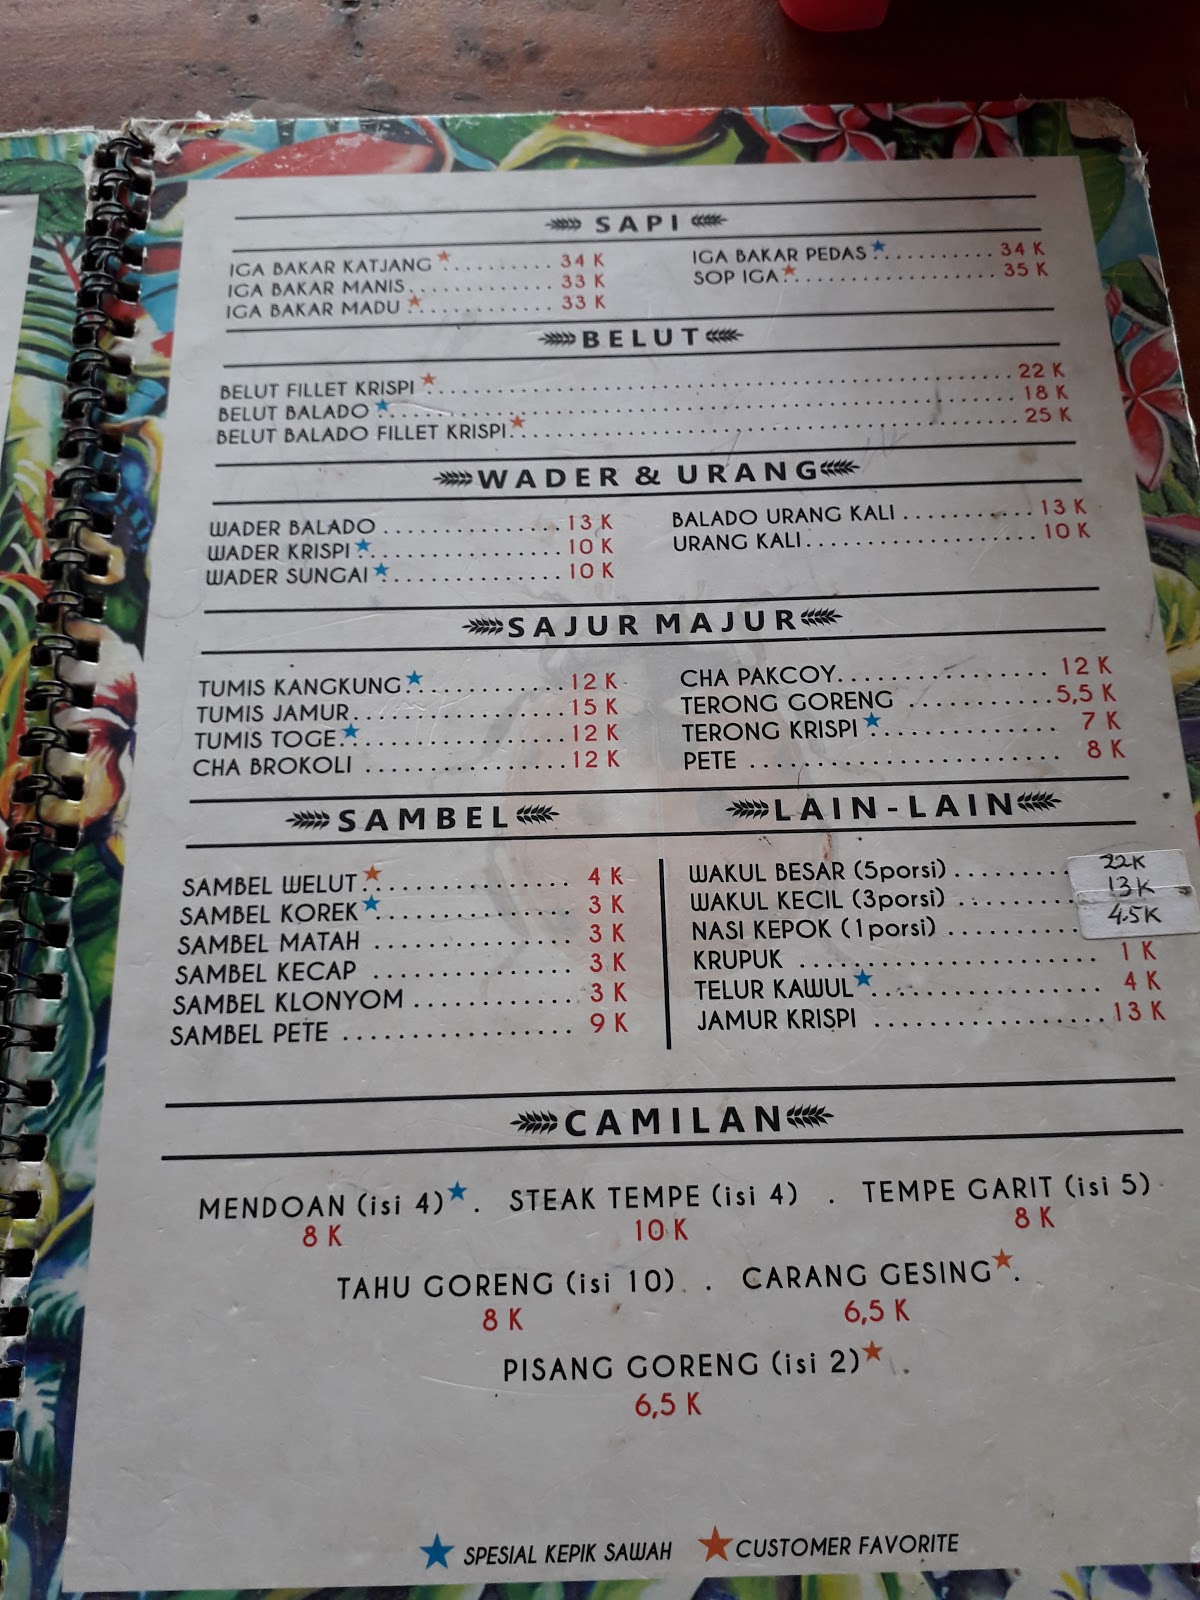 SAPI
IGA BAKAR KATJANG .......... 34 K
IGA BAKAR MANIS ............ 33 K
IGA BAKAR MADU ............ 33 K
IGA BAKAR PEDAS ......... 34 K
SOP IGA .................. 35 K
BELUT
BELUT FILLET KRISPI ............ 22 K
BELUT BALADO ............ 18 K
BELUT BALADO FILLET KRISPI ............ 25 K
WADER & URANG
WADER BALADO ............ 13 K
WADER KRISPI ............ 10 K
WADER SUNGAI ............ 10 K
BALADO URANG KALI .......... 13 K
URANG KALI ............ 10 K
SAJUR MAJUR
TUMIS KANGKUNG ............ 12 K
TUMIS JAMUR ............ 15 K
TUMIS TOGE ............ 12 K
CHA BROKOLI ............ 12 K
CHA PAKCOY ............ 12 K
TERONG GORENG ........... 5,5 K
TERONG KRISPI ............ 7 K
PETE ............ 8 K
SAMBEL
SAMBEL WELUT ............ 4 K
SAMBEL KOREK ............ 3 K
SAMBEL MATAH ............ 3 K
SAMBEL KECAP ............ 3 K
SAMBEL KLONYOM ............ 3 K
SAMBEL PETE ............ 9 K
LAIN-LAIN
WAKUL BESAR (5porsi) ........ 22K
WAKUL KECIL (3porsi) ........ 13K
NASI KEPOK (1porsi) ......... 4.5K
KRUPUK ............ 1 K
TELUR KAWUL ............ 4 K
JAMUR KRISPI ............ 13 K
CAMILAN
MENDOAN (isi 4) . STEAK TEMPE (isi 4) . TEMPE GARIT (isi 5)
8 K 10 K 8 K
TAHU GORENG (isi 10) . CARANG GESING .
8 K 6,5 K
PISANG GORENG (isi 2) .
6,5 K
SPESIAL KEPIK SAWAH CUSTOMER FAVORITE